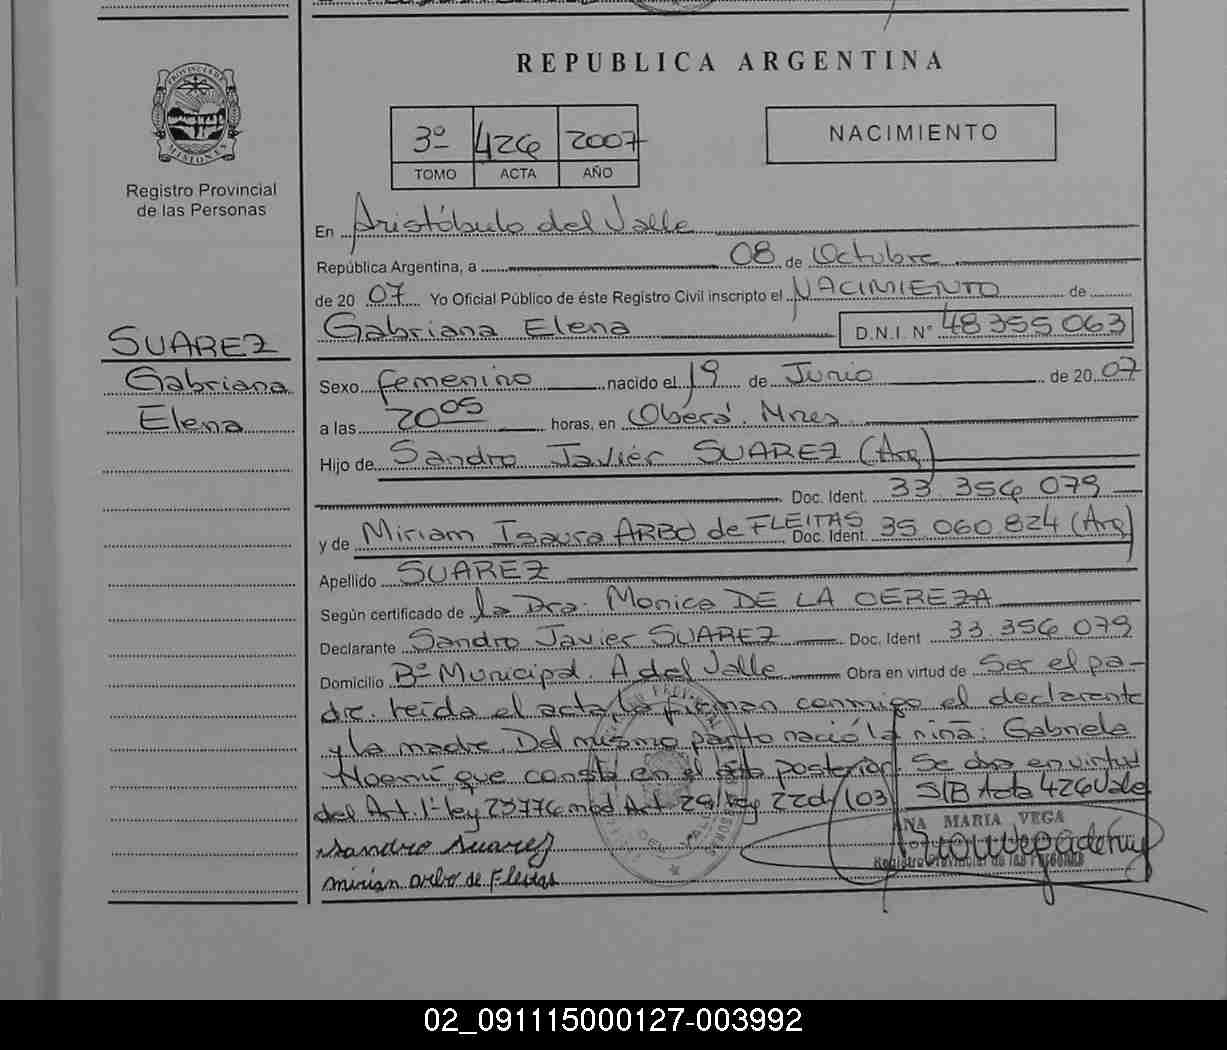 REPUBLICA ARGENTINA
PROVINCIA DE MISIONES
Registro Provincial
de las Personas
3º 426 2007
TOMO ACTA AÑO
NACIMIENTO
En Aristóbulo del Valle
República Argentina, a 08 de Octubre
de 2007 Yo Oficial Público de éste Registro Civil inscripto el NACIMIENTO de
Gabriana Elena D.N.I. Nº 48 355 063
SUAREZ
Gabriana
Elena
Sexo femenino nacido el 19 de Junio de 2007
a las 20 05 horas, en Oberá. Mnes
Hijo de Sandro Javier SUAREZ (Arg)
Doc. Ident. 33 356 079
y de Miriam Isaura ARBO de FLEITAS Doc. Ident. 35 060 824 (Arg)
Apellido SUAREZ
Según certificado de La Dra. Monica DE LA CEREZA
Declarante Sandro Javier SUAREZ Doc. Ident 33 356 079
Domicilio Bº Municipal. A del Valle Obra en virtud de Ser el pa-
dre. Leída el acta, la firman conmigo el declarante
y la madre. Del mismo parto nació la niña: Gabriela
Noemí que consta en el posterior. Se dro en virtud
del Art. 1º ley 23776 mod Art. 29 ley 22d/103 S/B Acta 426 Vale
Sandro Suarez
ANA MARIA VEGA
Registro Provincial de las Personas
mirian arbo de Fleitas
02_091115000127-003992